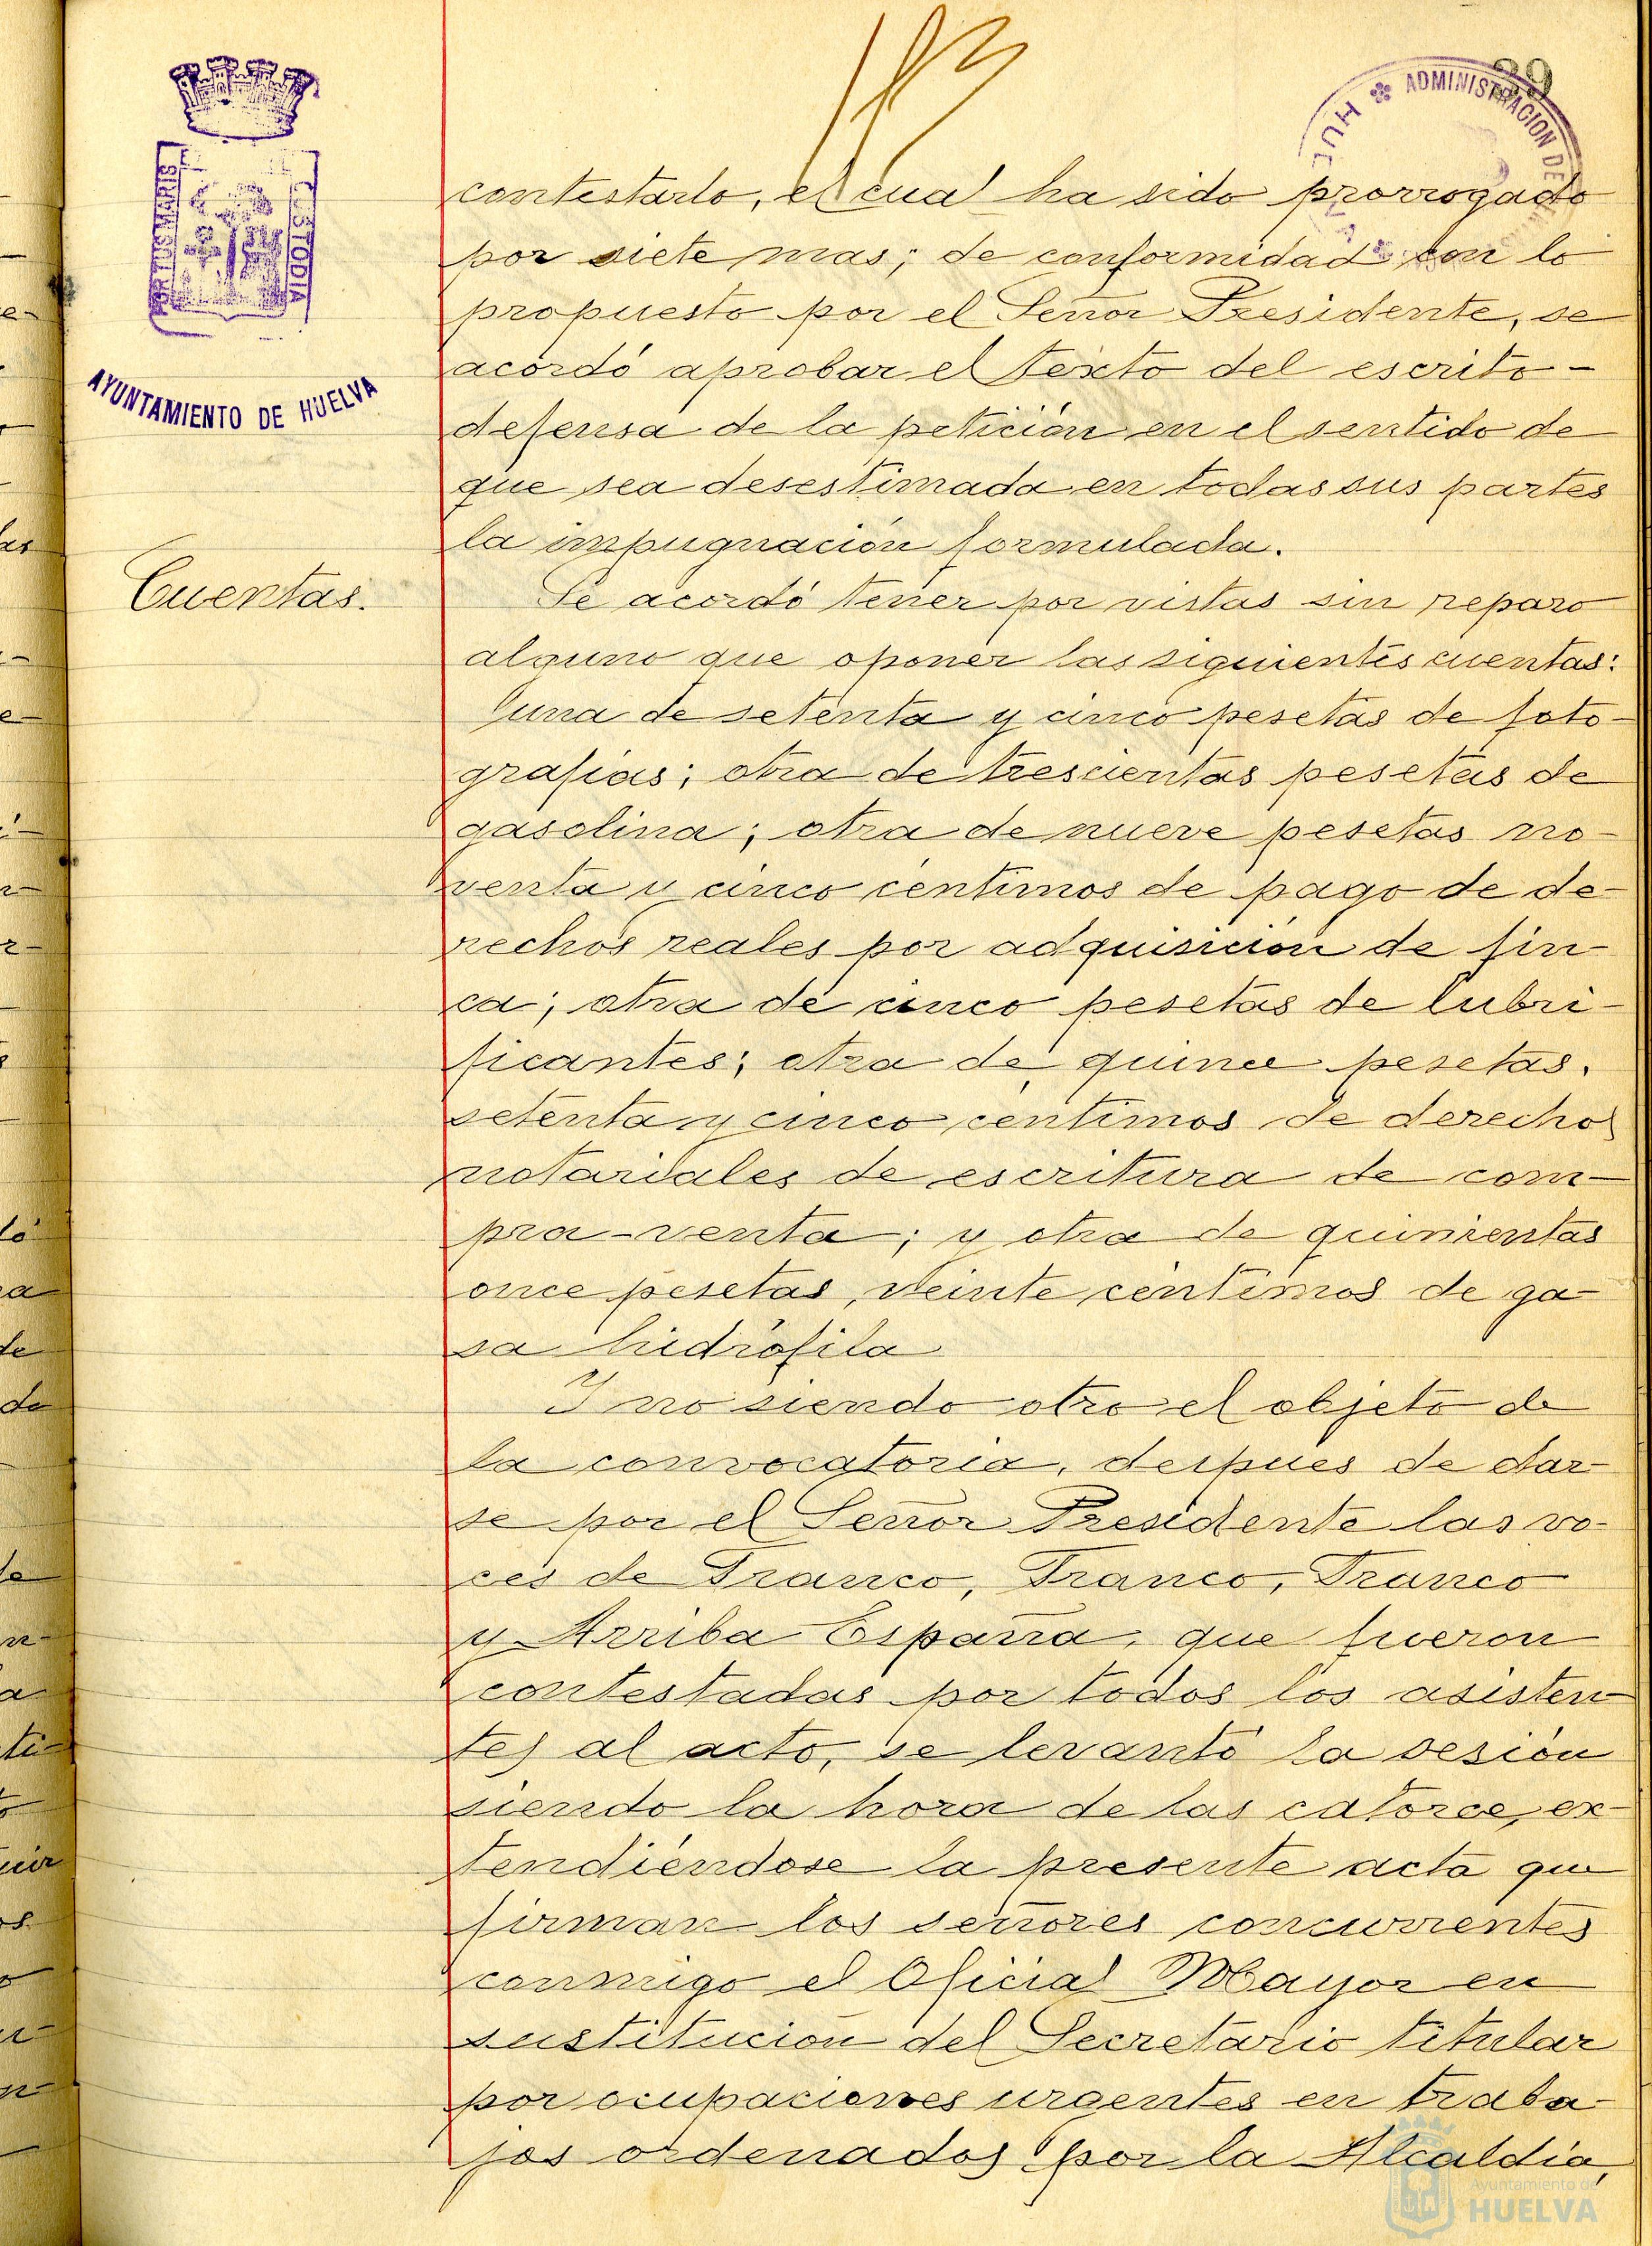 39
ADMINISTRACION DE
HUELVA
PORTUS MARIS
CUSTODIA
AYUNTAMIENTO DE HUELVA
contestarlo, el cual ha sido prorrogado
por siete mas; de conformidad con lo
propuesto por el Señor Presidente, se
acordó aprobar el texto del escrito-
defensa de la petición en el sentido de
que sea desestimada en todas sus partes
la impugnación formulada.
Cuentas.
Se acordó tener por vistas sin reparo
alguno que oponer las siguientes cuentas:
una de setenta y cinco pesetas de foto-
grafias; otra de trescientas pesetas de
gasolina; otra de nueve pesetas no-
venta y cinco centimos de pago de de-
rechos reales por adquisición de fin-
ca; otra de cinco pesetas de lubri-
ficantes; otra de quince pesetas,
setenta y cinco centimos de derechos
notariales de escritura de com-
pra-venta; y otra de quinientas
once pesetas, veinte centimos de ga-
sa hidrófila
Y no siendo otro el objeto de
la convocatoria, despues de dar-
se por el Señor Presidente las vo-
ces de Franco, Franco, Franco
y Arriba España, que fueron
contestadas por todos los asisten-
tes al acto, se levantó la sesión
siendo la hora de las catorce, ex-
tendiéndose la presente acta que
firman los señores concurrentes
conmigo el Oficial Mayor en
sustitución del Secretario titular
por ocupaciones urgentes en traba-
jos ordenados por la Alcaldía,
Ayuntamiento de
HUELVA